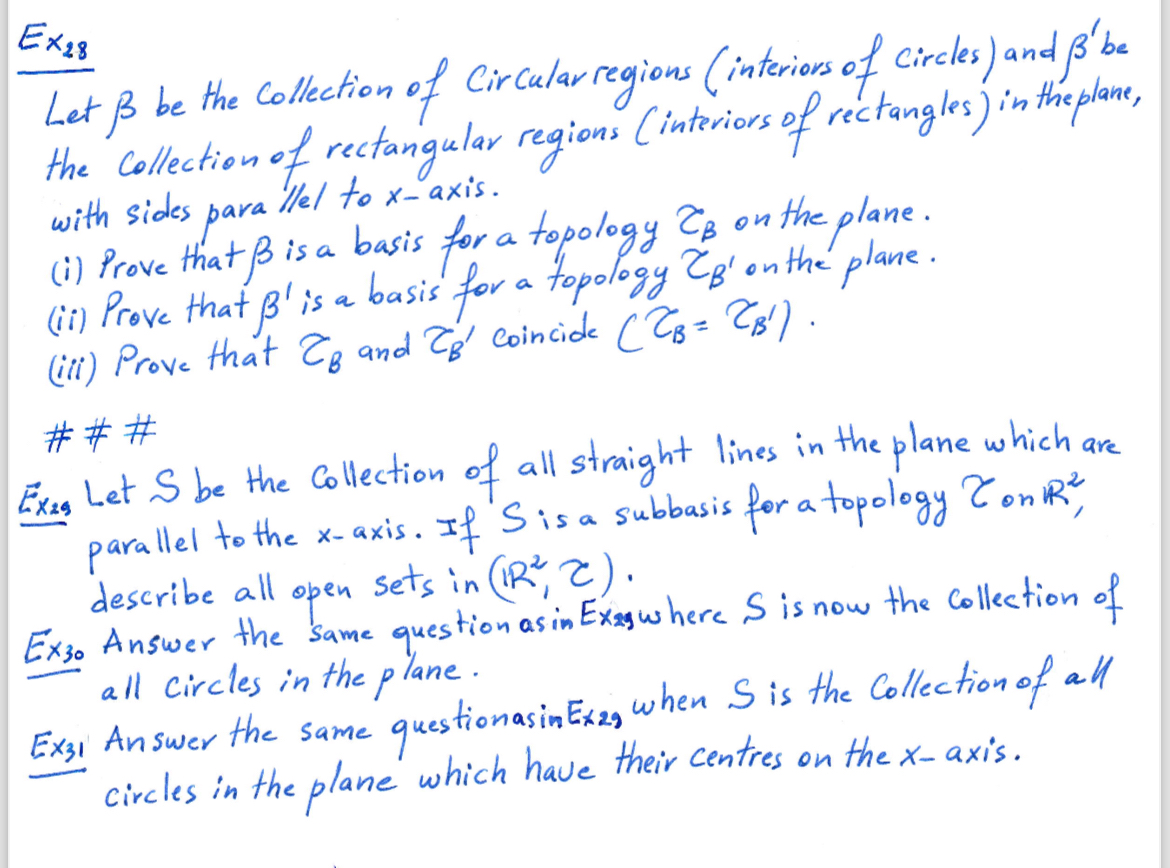 Ex28
Let β be the Collection of Circular regions (interiors of circles) and β' be
the Collection of rectangular regions (interiors of rectangles) in the plane,
with sides parallel to x-axis.
(i) Prove that β is a basis for a topology τβ on the plane.
(ii) Prove that β' is a basis for a topology τβ' on the plane.
(iii) Prove that τβ and τβ' Coincide (τβ = τβ').
# # #
Ex29 Let S be the Collection of all straight lines in the plane which are
parallel to the x-axis. If S is a subbasis for a topology τ on ℝ²,
describe all open sets in (ℝ², τ).
Ex30 Answer the same question as in Ex29 where S is now the Collection of
all circles in the plane.
Ex31 Answer the same question as in Ex29 when S is the Collection of all
circles in the plane which have their centres on the x-axis.